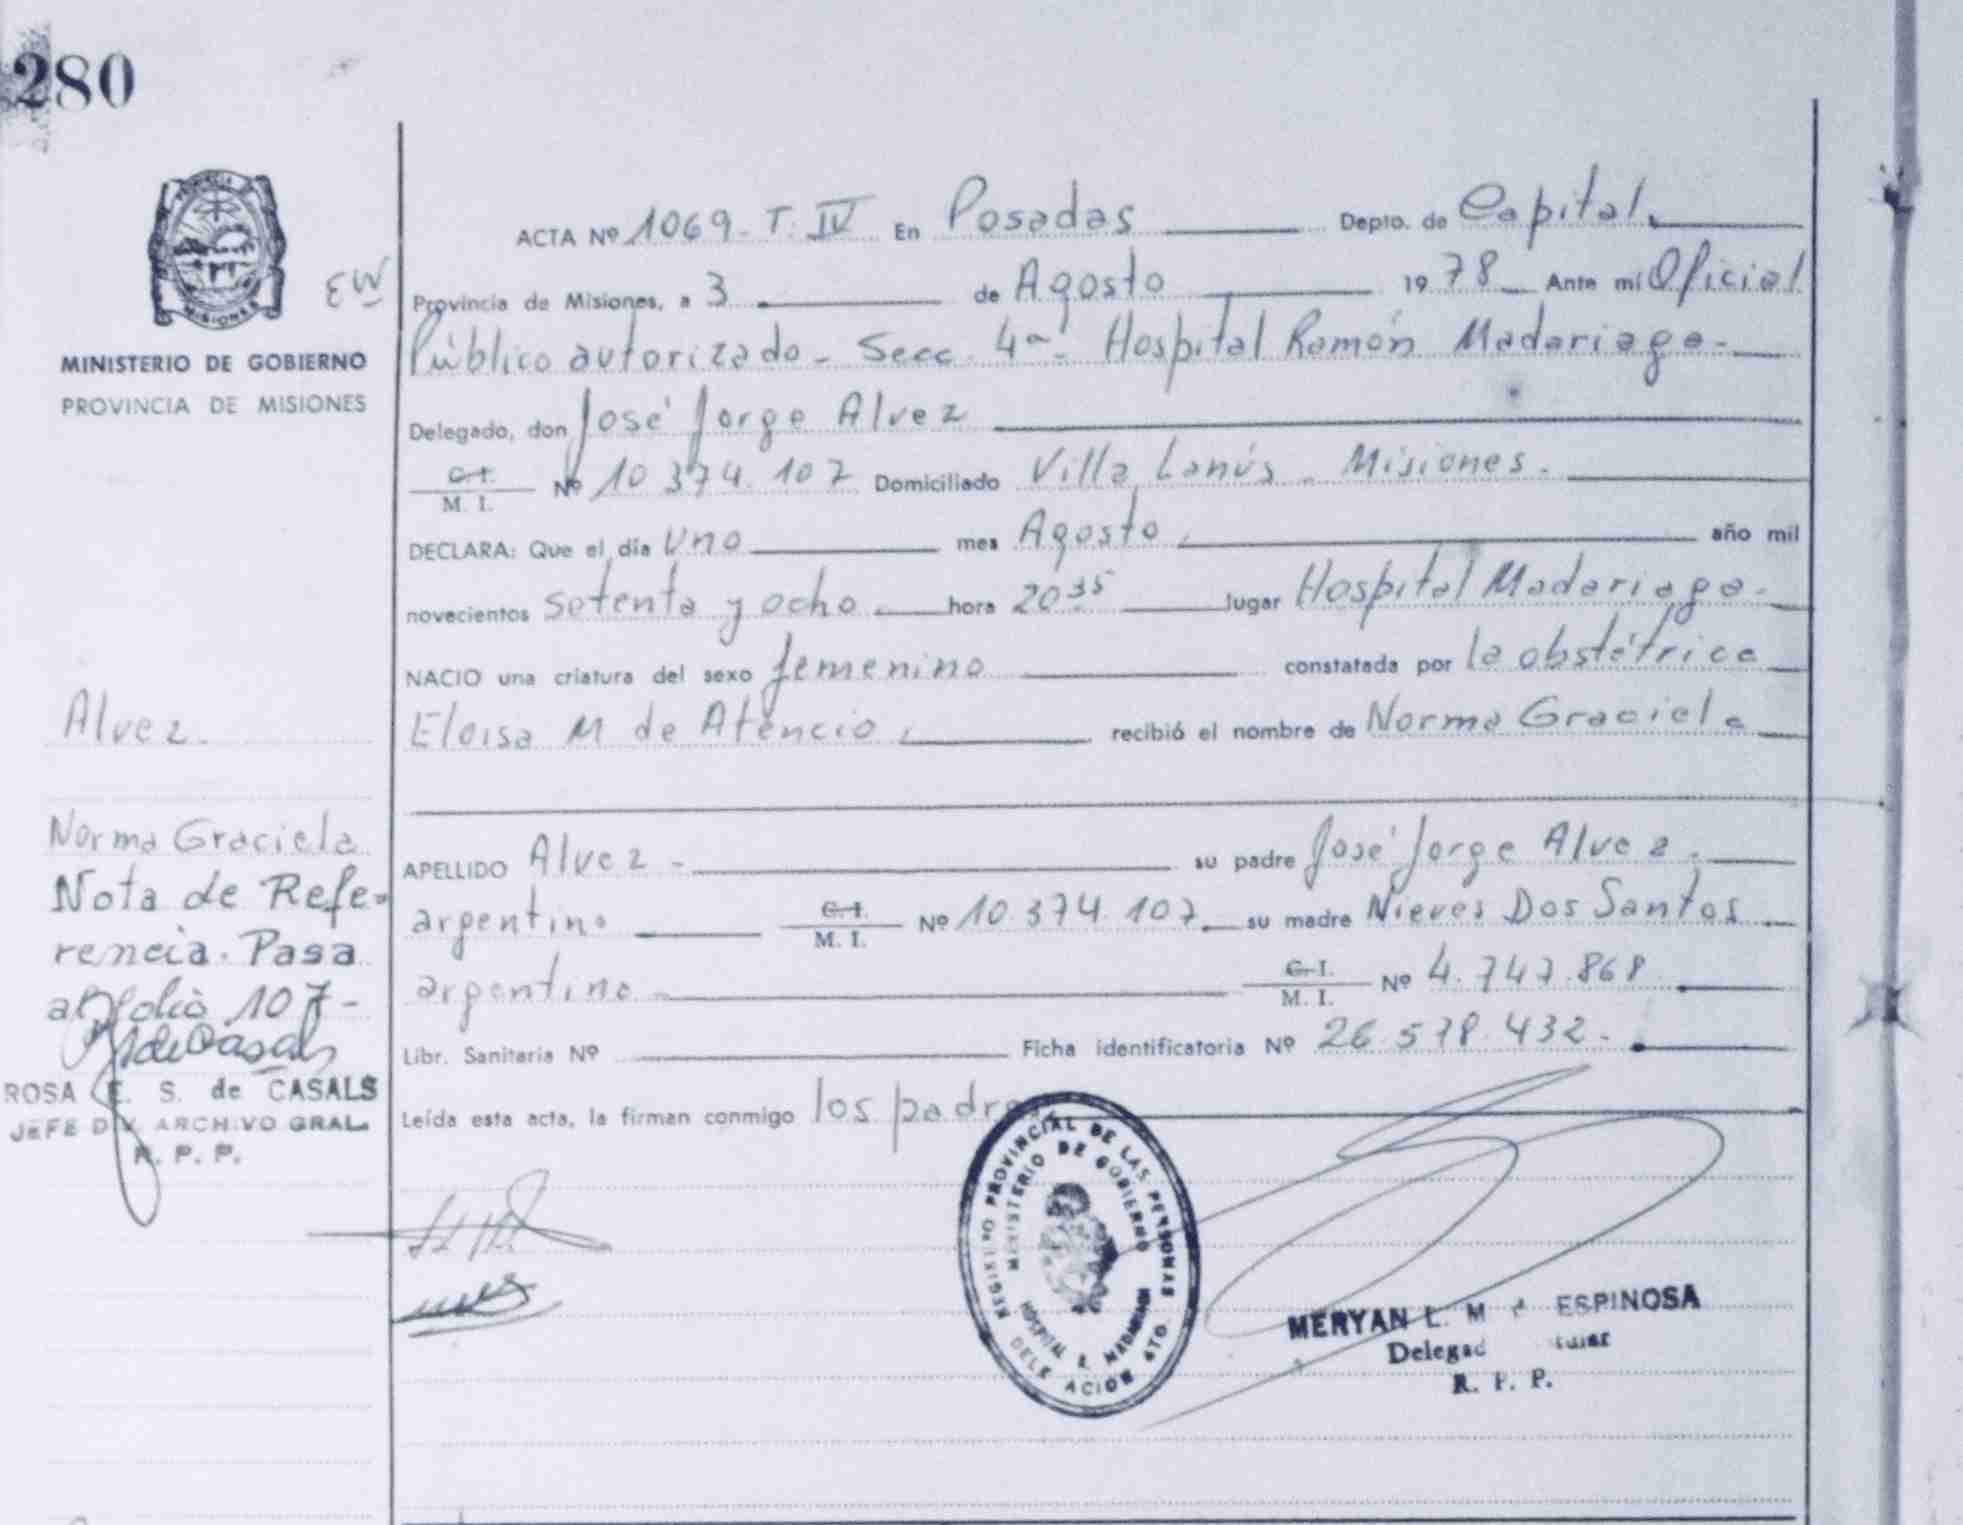 280
PROVINCIA
MISIONES
EW
MINISTERIO DE GOBIERNO
PROVINCIA DE MISIONES
ACTA Nº 1069 - T. IV En Posadas Depto. de Capital.
Provincia de Misiones, a 3 de Agosto 1978 Ante mí Oficial
Público autorizado - Secc. 4ª - Hospital Ramón Madariaga -
Delegado, don José Jorge Alvez
C.I. M. I. Nº 10 374. 107 Domiciliado Villa Lanús - Misiones.
DECLARA: Que el día Uno mes Agosto, año mil
novecientos setenta y ocho hora 20 35 lugar Hospital Madariaga -
NACIO una criatura del sexo femenino constatada por la obstétrica
Eloisa M de Atencio, recibió el nombre de Norma Graciela
APELLIDO Alvez - su padre José Jorge Alvez.
argentino C.I. M. I. Nº 10. 374. 107. su madre Nieves Dos Santos
argentina - C.I. M. I. Nº 4. 747. 868
Libr. Sanitaria Nº Ficha identificatoria Nº 26. 578. 432. -
Leída esta acta, la firman conmigo los padres
Alvez.
Norma Graciela
Nota de Refe-
rencia. Pasa
al folio 107-
ROSA E. S. de CASALS
JEFE DIV. ARCHIVO GRAL.
R. P. P.
REGISTRO PROVINCIAL DE LAS PERSONAS
MINISTERIO DE GOBIERNO
HOSPITAL R. MADARIAGA
DELEGACION 4TO.
MERYAN L. M ESPINOSA
Delegad
R. P. P.